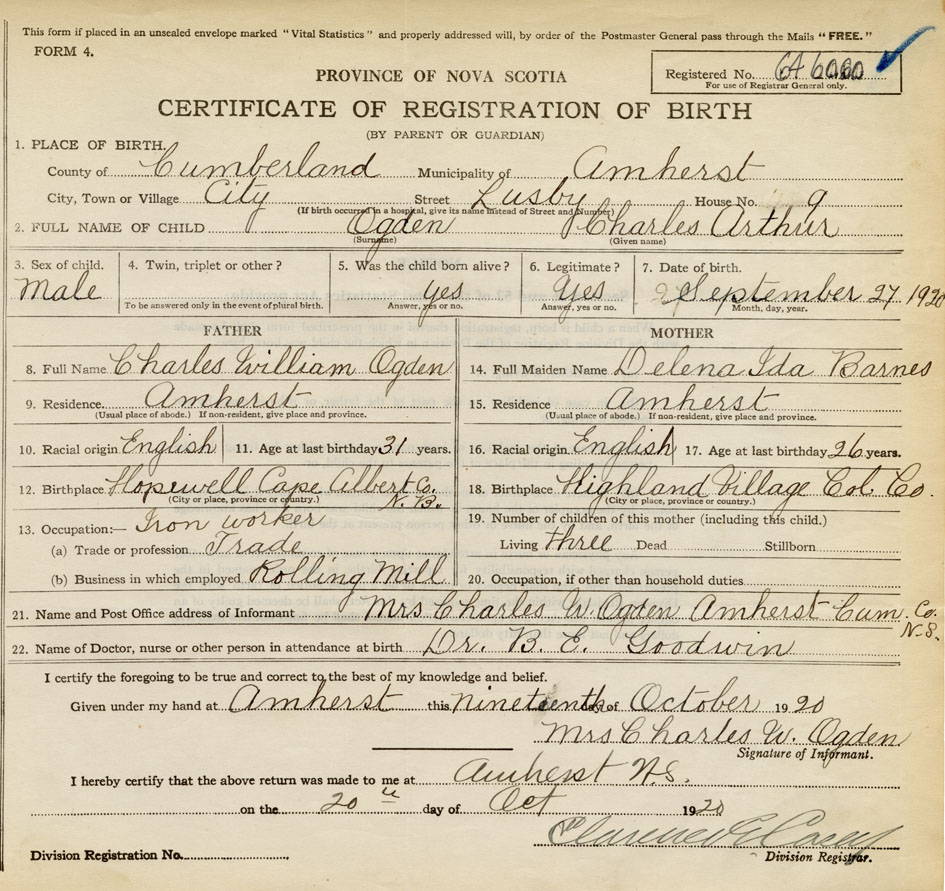 This form if placed in an unsealed envelope marked "Vital Statistics" and properly addressed will, by order of the Postmaster General pass through the Mails "FREE."
FORM 4.
Registered No.
For use of Registrar General only.
PROVINCE OF NOVA SCOTIA
CERTIFICATE OF REGISTRATION OF BIRTH
(BY PARENT OR GUARDIAN)
1. PLACE OF BIRTH.
County of Cumberland Municipality of Amherst
City, Town or Village City Street Lusby House No. 9
(If birth occurred in a hospital, give its name instead of Street and Number)
2. FULL NAME OF CHILD Ogden Charles Arthur
(Surname) (Given name)
3. Sex of child. 4. Twin, triplet or other? 5. Was the child born alive? 6. Legitimate? 7. Date of birth.
Male yes yes September 27 1920
To be answered only in the event of plural birth. Answer, yes or no. Answer, yes or no. Month, day, year.
FATHER MOTHER
8. Full Name Charles William Ogden 14. Full Maiden Name Delena Ida Barnes
9. Residence. Amherst 15. Residence Amherst
(Usual place of abode.) If non-resident, give place and province. (Usual place of abode.) If non-resident, give place and province.
10. Racial origin English 11. Age at last birthday 31 years. 16. Racial origin English 17. Age at last birthday 26 years.
12. Birthplace Hopewell Cape Albert Co. N.B. 18. Birthplace Highland Village Col. Co.
(City or place, province or country.) (City or place, province or country.)
13. Occupation:— Iron worker 19. Number of children of this mother (including this child.)
(a) Trade or profession Trade Living three Dead Stillborn
(b) Business in which employed Rolling Mill 20. Occupation, if other than household duties
21. Name and Post Office address of Informant Mrs Charles W. Ogden Amherst Cum. Co. N.S.
22. Name of Doctor, nurse or other person in attendance at birth Dr. B. E. Goodwin
I certify the foregoing to be true and correct to the best of my knowledge and belief.
Given under my hand at Amherst this nineteenth day of October 1920
Mrs Charles W. Ogden
Signature of Informant.
I hereby certify that the above return was made to me at Amherst N.S.
on the 20th day of Oct 1920
Division Registration No.
Division Registrar.